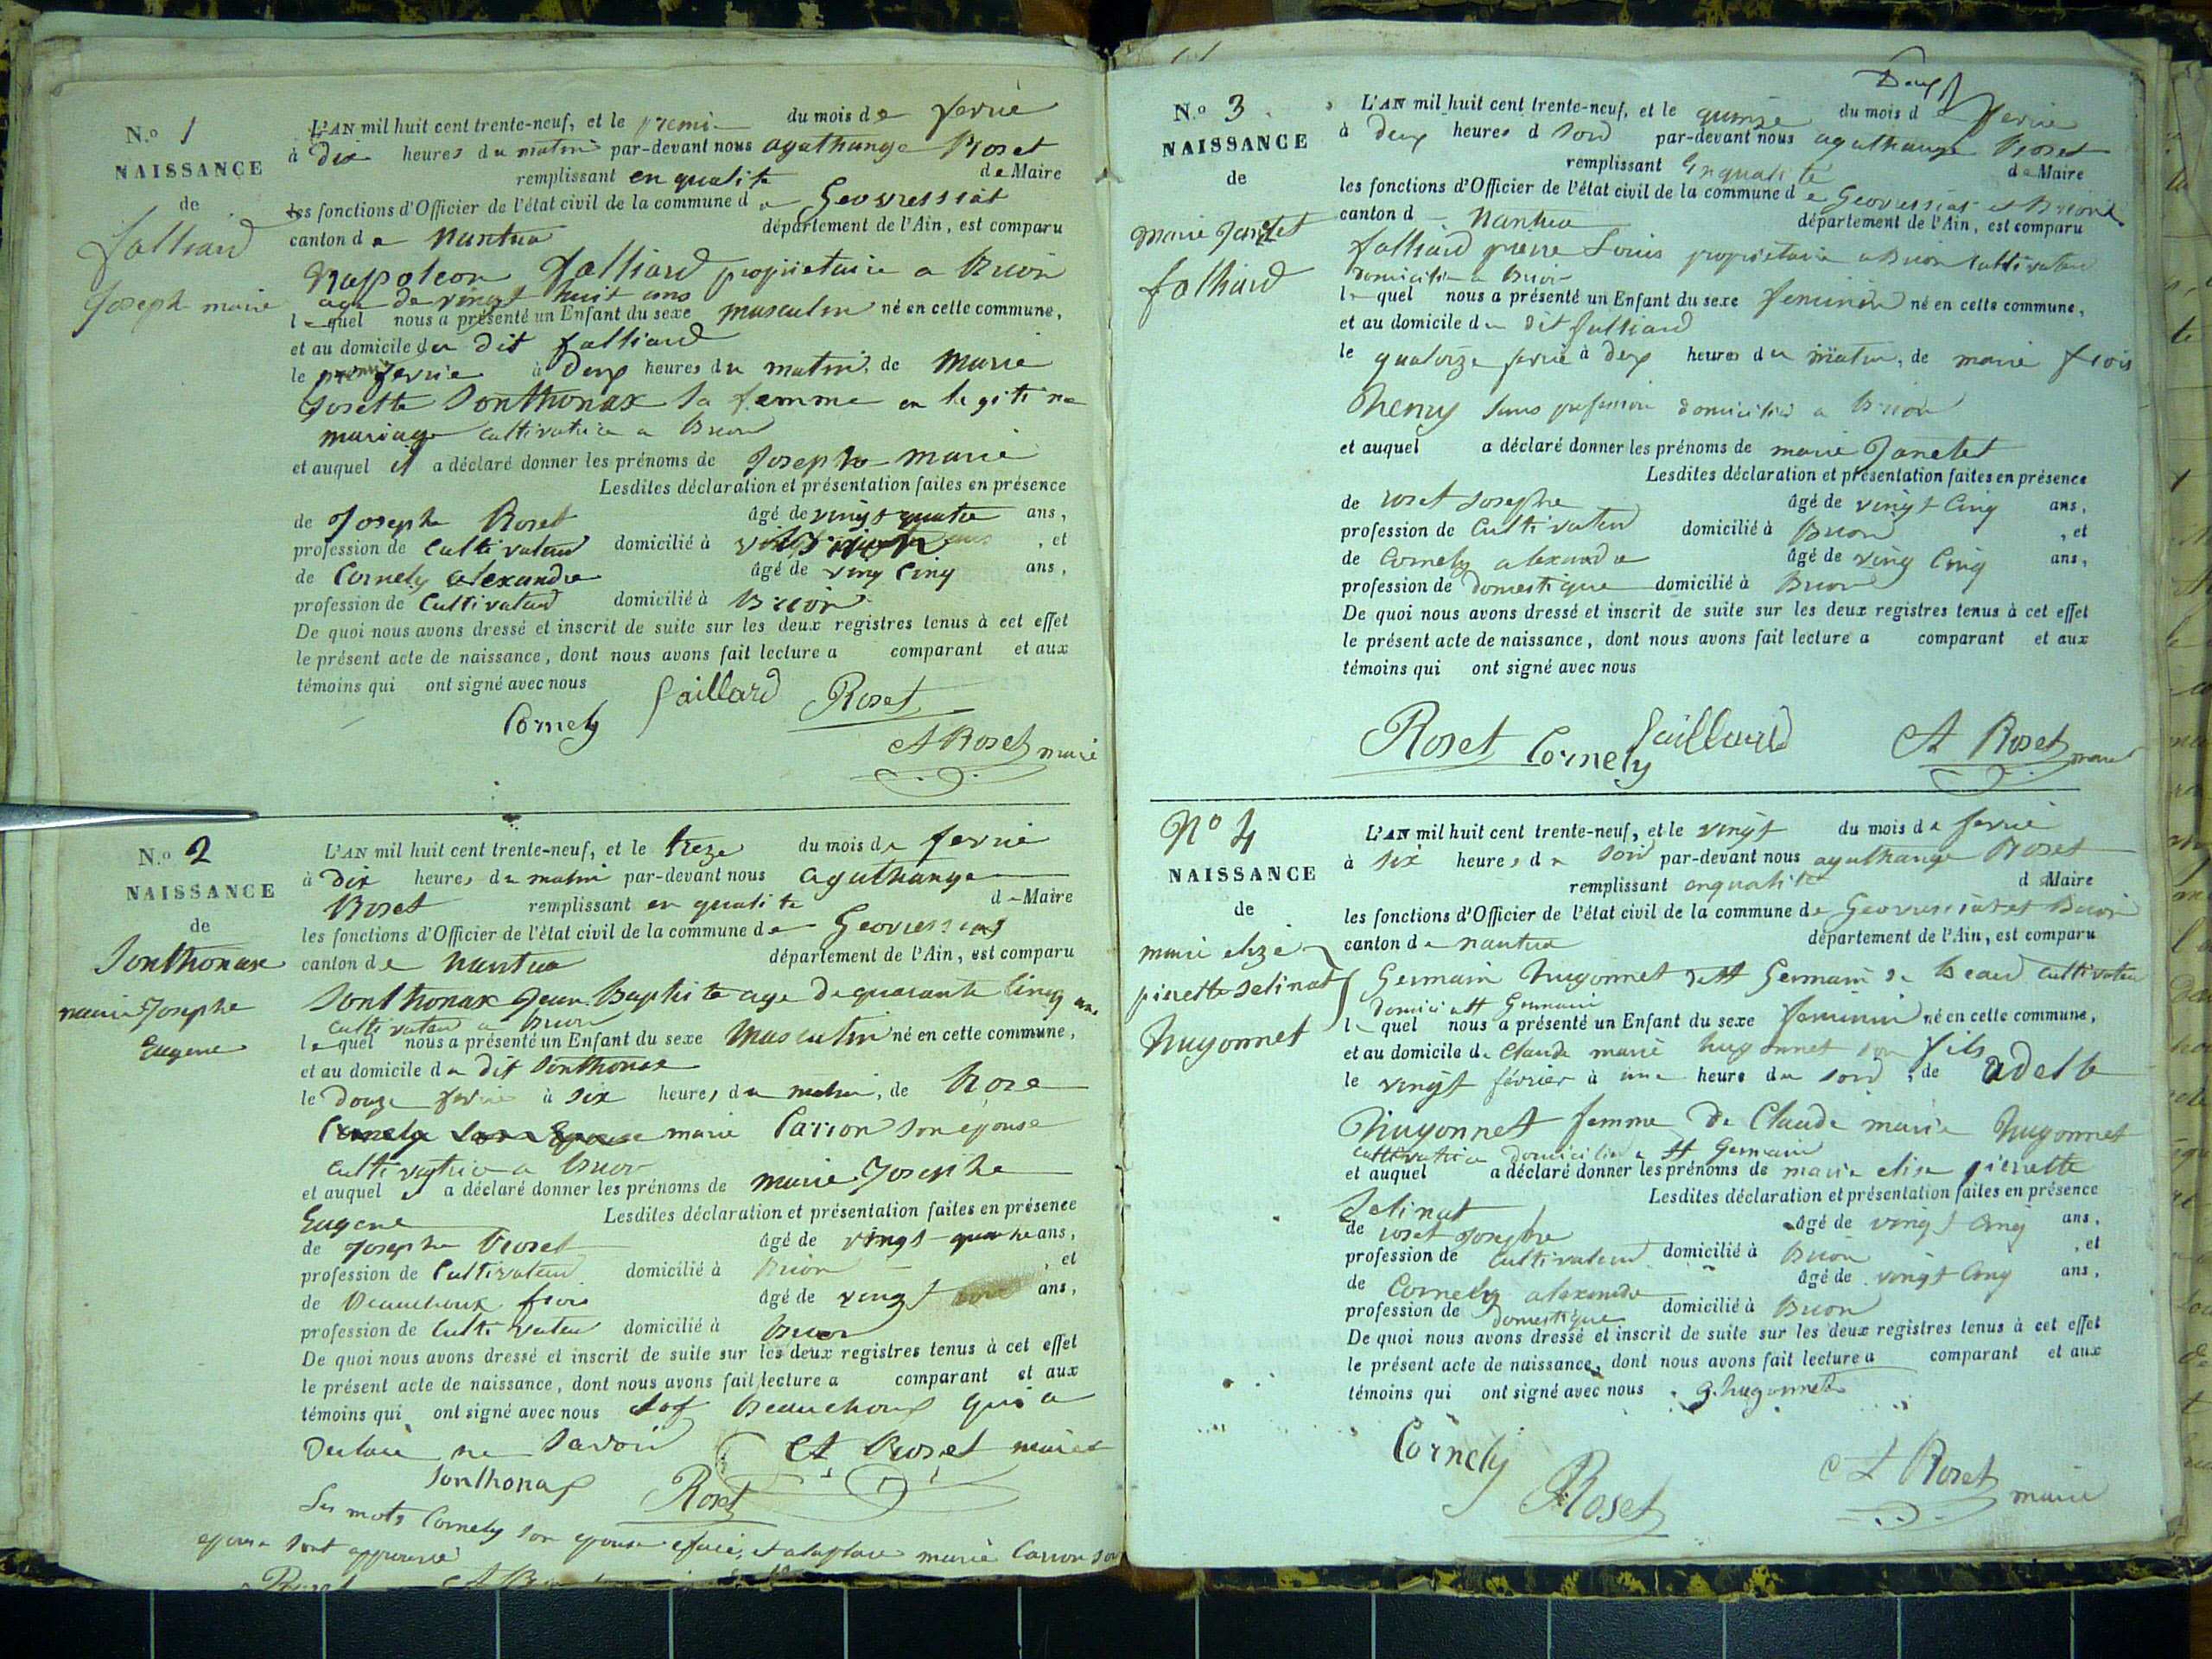 N.o 1
NAISSANCE
de
falliard
Joseph marie
L'AN mil huit cent trente-neuf, et le premi du mois de fevrié
à dix heures du matin par-devant nous agathange Roset
remplissant en qualite de Maire
les fonctions d'Officier de l'état civil de la commune de Geovressiat
canton de Nantua département de l'Ain, est comparu
Napoleon falliard proprietaire a Brion
age de vingt huit ans
lequel nous a présenté un Enfant du sexe masculin né en cette commune,
et au domicile du dit falliard
le fevrié à deux heures du matin, de Marie
Josette Sonthonax sa femme en legitime
mariage cultivatrice a Brion
et auquel il a déclaré donner les prénoms de Joseph marie
Lesdites déclaration et présentation faites en présence
de Joseph Roset âgé de vingt quatre ans,
profession de Cultivateur domicilié à Brion, et
de Cornely alexandre âgé de ving cinq ans,
profession de Cultivateur domicilié à Brion
De quoi nous avons dressé et inscrit de suite sur les deux registres tenus à cet effet
le présent acte de naissance, dont nous avons fait lecture a comparant et aux
témoins qui ont signé avec nous
Cornely faillard Roset
A Roset maire
N.o 2
NAISSANCE
de
Sonthonax
marie Josephe
Eugene
L'AN mil huit cent trente-neuf, et le treze du mois de fevrié
à dix heures du matin par-devant nous agathange
Roset remplissant en qualite de Maire
les fonctions d'Officier de l'état civil de la commune de Geovressiat
canton de Nantua département de l'Ain, est comparu
Sonthonax Jean Baptiste age de quarante cinq ans
cultivateur a Brion
lequel nous a présenté un Enfant du sexe Masculin né en cette commune,
et au domicile du dit Sonthonax
le douze fevrié à six heures du matin, de Roze
Cornely son Epouse marie Carron son epouse
cultivatrice a Brion
et auquel il a déclaré donner les prénoms de marie Josephe
Eugene Lesdites déclaration et présentation faites en présence
de Joseph Roset âgé de vingt quatre ans,
profession de Cultivateur domicilié à Brion, et
de Beauchoux frois âgé de vingt ans,
profession de Cultivateur domicilié à Brion
De quoi nous avons dressé et inscrit de suite sur les deux registres tenus à cet effet
le présent acte de naissance, dont nous avons fait lecture a comparant et aux
témoins qui ont signé avec nous Beauchoux qui a
Declaré ne Savoir A Roset maire
Sonthonax Roset
Les mots Cornely son epouse éfacé, et a la place marie Carron son
epouse sont approuvé
Roset A Roset
Deux
N.o 3
NAISSANCE
de
marie Janetet
falliard
L'AN mil huit cent trente-neuf, et le quinze du mois d fevrié
à deux heures d Soir par-devant nous agathange Roset
remplissant Enqualité de Maire
les fonctions d'Officier de l'état civil de la commune de Geovressiat et Brion
canton d Nantua département de l'Ain, est comparu
falliard pierre Louis proprietaire a Brion Cultivateur
domicilié a Brion
lequel nous a présenté un Enfant du sexe feminin né en cette commune,
et au domicile du dit falliard
le quatorze fevrié à deux heures du matin, de marie frois
Heny sans profession domicilié a Brion
et auquel a déclaré donner les prénoms de marie Janetet
Lesdites déclaration et présentation faites en présence
de roset Josephe âgé de vingt cinq ans,
profession de Cultivateur domicilié à Brion, et
de Cornely alexandre âgé de ving cinq ans,
profession de domestique domicilié à Brion
De quoi nous avons dressé et inscrit de suite sur les deux registres tenus à cet effet
le présent acte de naissance, dont nous avons fait lecture a comparant et aux
témoins qui ont signé avec nous
Roset Cornely faillard A Roset maire
No 4
NAISSANCE
de
marie elize
pierette Selinat
hugonnet
L'AN mil huit cent trente-neuf, et le vingt du mois de fevrié
à six heures de Soir par-devant nous agathange Roset
remplissant enqualité d Maire
les fonctions d'Officier de l'état civil de la commune de Geovressiat et Brion
canton de nantua département de l'Ain, est comparu
Germain hugonnet de St Germain de Beard cultivateur
domici a St Germain
lequel nous a présenté un Enfant du sexe feminin né en cette commune,
et au domicile de Claude marie hugonnet son fils
le vingt février à une heure du soir, de adelle
hugonnet femme de Claude marie hugonnet
cultivatrice domicilié a St Germain
et auquel a déclaré donner les prénoms de marie elise pierette
Selinat Lesdites déclaration et présentation faites en présence
de roset Josephe âgé de vingt cinq ans,
profession de cultivateur domicilié à Brion, et
de Cornely alexandre âgé de vingt cinq ans,
profession de domestique domicilié à Brion
De quoi nous avons dressé et inscrit de suite sur les deux registres tenus à cet effet
le présent acte de naissance, dont nous avons fait lecture a comparant et aux
témoins qui ont signé avec nous g. hugonnet
Cornely
Roset A Roset maire